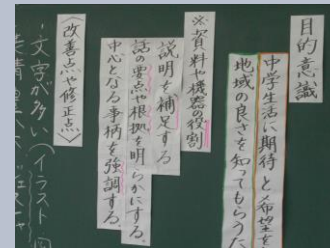 目的意識
中学生活に期待と希望を
地域の良さを知ってもらうた
※資料や機器の役割
説明を補足する
話の要点や根拠を明らかにする。
中心となる事柄を強調する。
〈改善点や修正点〉
・文字が多い(イラスト